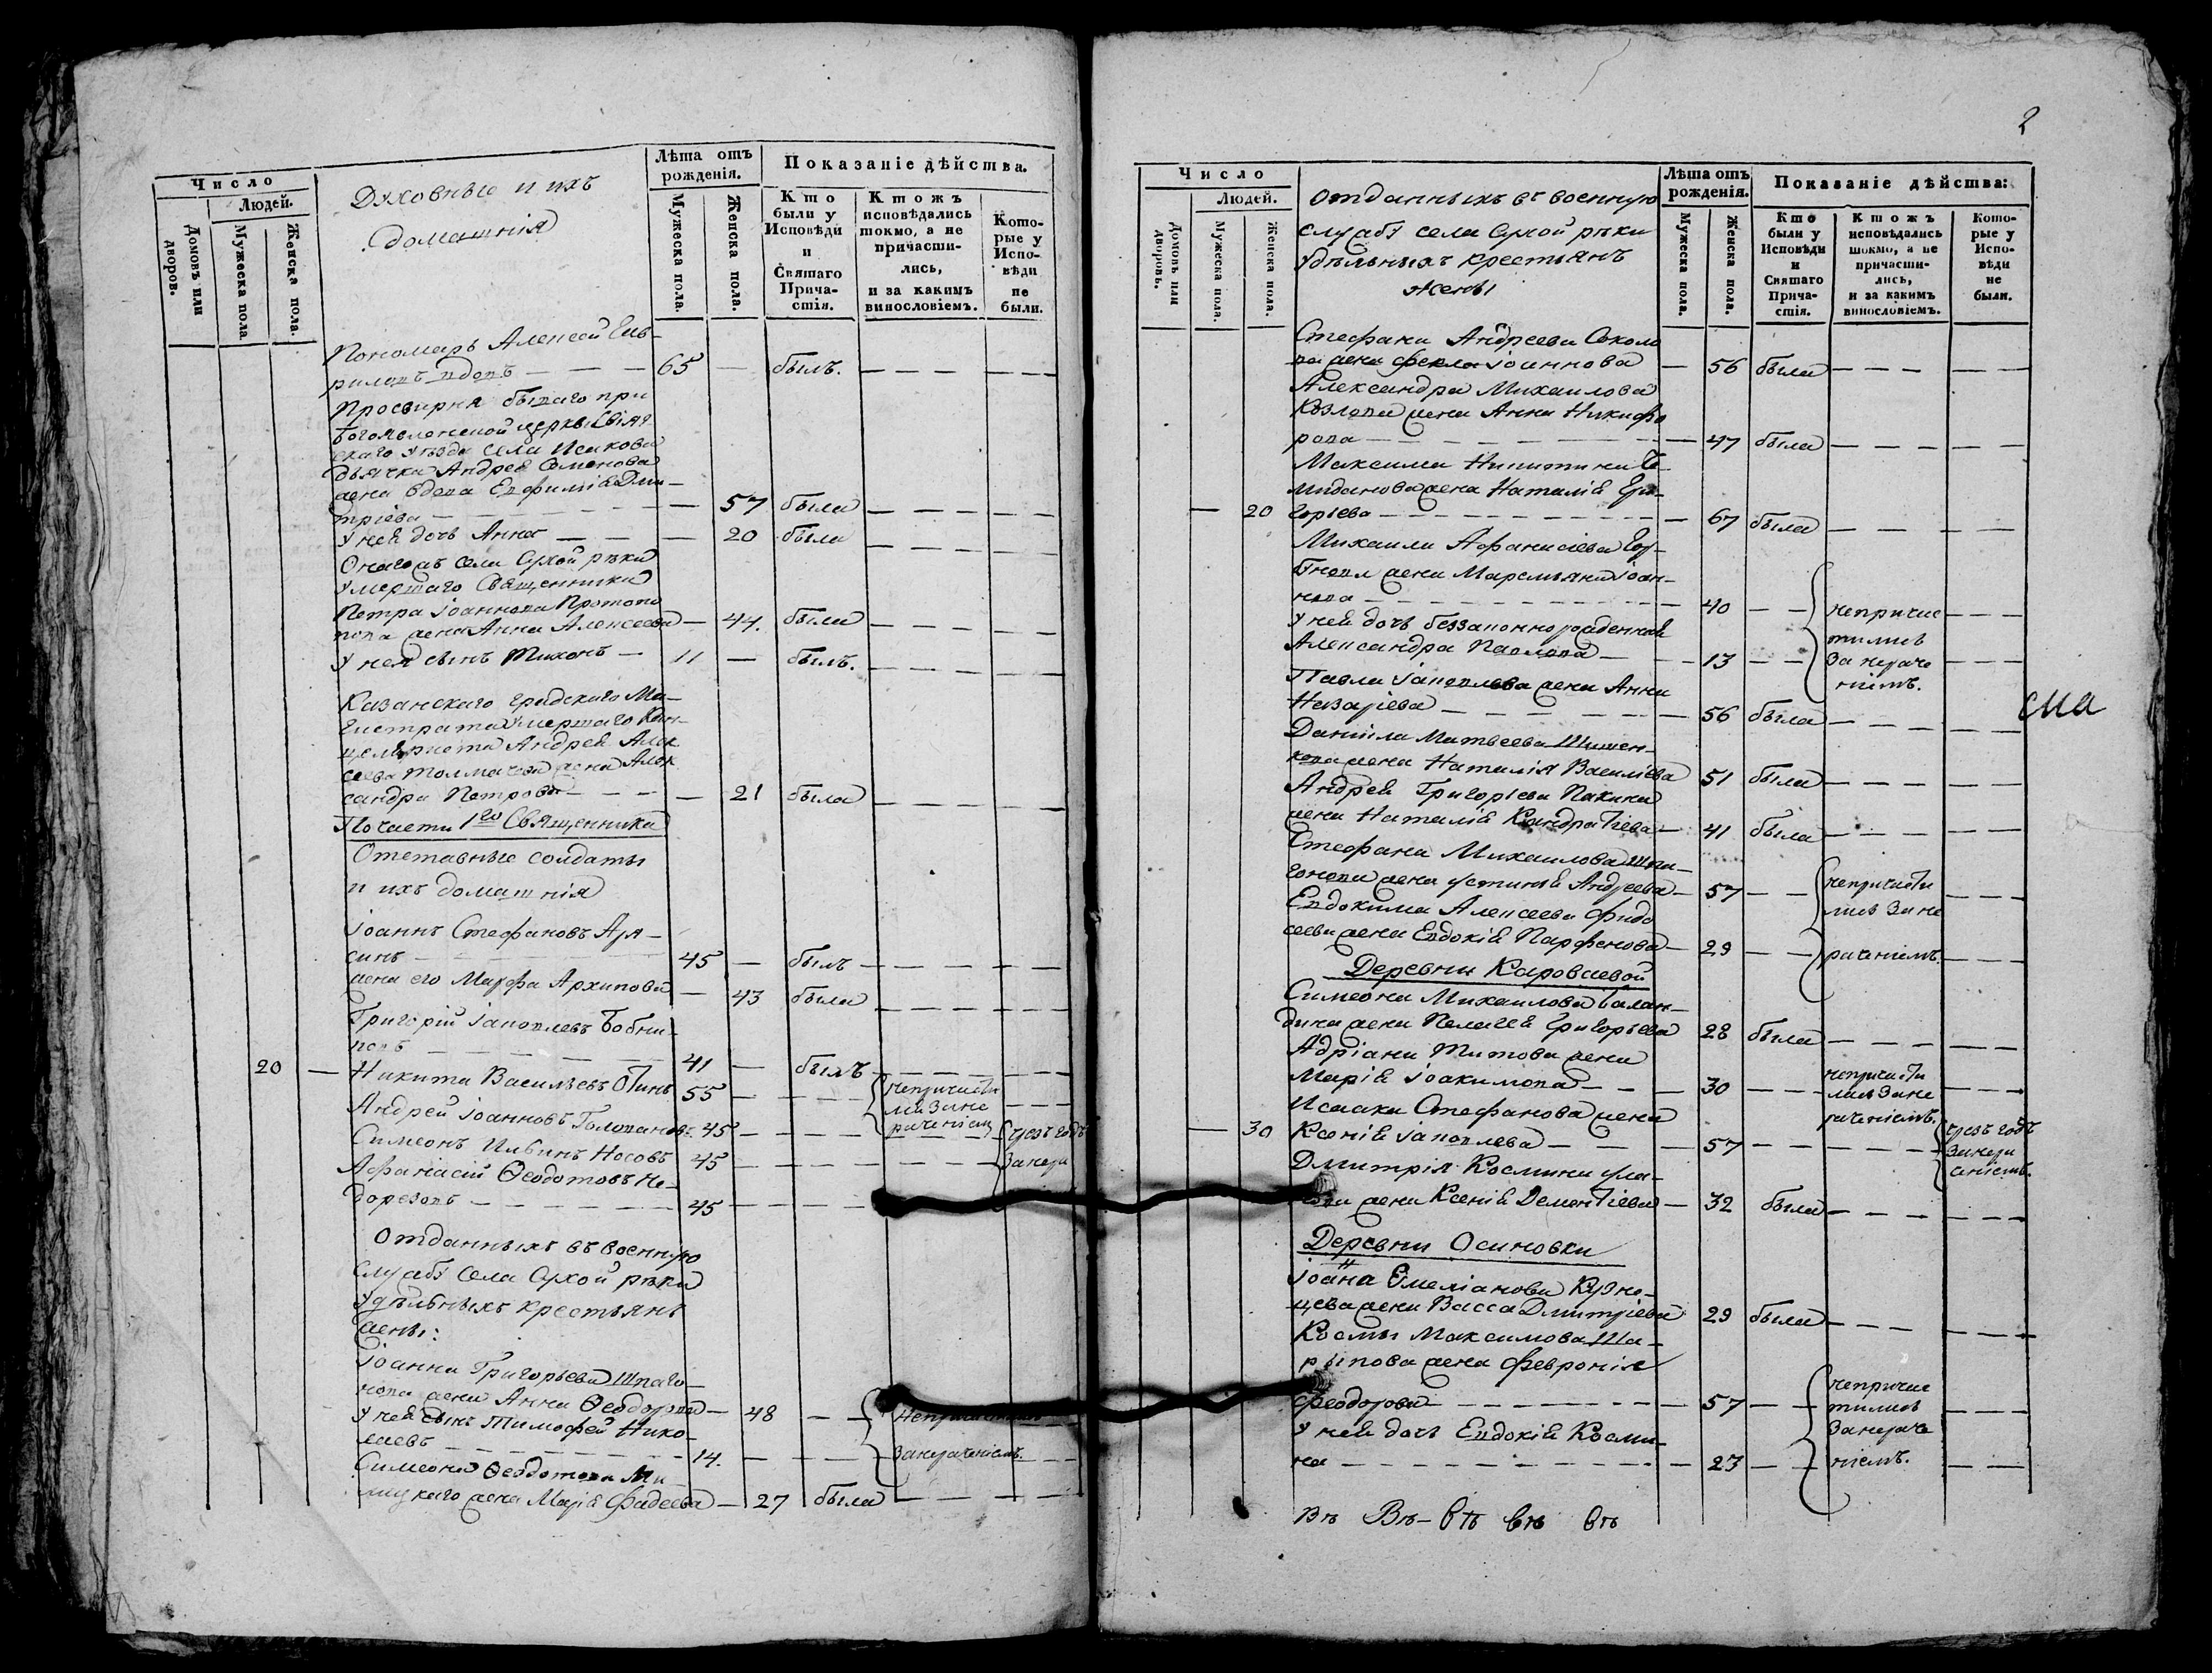 Число
Людей.
Домовъ или дворовъ.
Мужеска пола
Женска пола.
Духовные и ихъ
домашнія
Лѣта отъ рожденія.
Мужеска пола.
Женска пола.
Показаніе дѣйства.
Кто были у Исповѣди и Святаго Причастія.
Ктожъ исповѣдались токмо, а не причастились, и за какимъ винословіемъ.
Которые у Исповѣди не были.
Пономарь Алексей Гав-
риловъ вдовъ — — — 65 — былъ. — — — — —
Просвирня бывшаго при
Богоявленской церкви
скаго уѣзда села Исакова
дьячка Андрея Семенова
жена вдова Евфимія Дми-
тріева — — — 57 была — — — — —
У ней дочь Анна — — — 20 была — — — — —
Онагожъ села Сухой рѣки
умершаго Священника
Петра Іоаннова Протопо
пова жена Анна Алексеева — 44. была — — — — —
У нея сынъ Тихонъ — 11 — былъ. — — — — —
Казанскаго градскаго Ма-
гистрата умершаго Кан-
целяриста Андрея Алек
сеева Толмачева жена Алек
сандра Петрова — — — 21 была — — — — —
По части 1го Священника
Отставные солдаты
и ихъ домашнія
Іоаннъ Стефановъ Аря-
синъ — 45 — былъ — — — — —
жена его Марфа Архипова — 43 была — — — — —
Григорій Іаковлевъ Бобни-
ковъ — — — 41 — былъ — — — — —
20 — Никита Васильевъ 55 — — непричасти
Андрей Іоанновъ Голованов. 45 — — — ли за не
раченіем
Симеонъ Ильинъ Носовъ 45 — — — — — чрезъ годъ
Афанасій Ѳеодотовъ Не-
дорезовъ — — — 45 — — — за нера
Отданныхъ въ военную
службу села Сухой рѣки
удѣльныхъ крестьянъ
жены:
Іоанна Григорьева Шпаго-
нова жена Анна Ѳеодорова — 48 — —
У ней сынъ Тимофей Нико-
лаевъ — — — 14. — — — за нераченіемъ.
Симеона Ѳеодотова Ми
лицкаго жена Марія Фадеева — 27 была — — — — —
2
Число
Людей.
Домовъ или дворовъ.
Мужеска пола.
Женска пола.
Отданныхъ въ военную
службу села Сухой рѣки
удѣльныхъ крестьянъ
жены
Лѣта отъ рожденія.
Мужеска пола.
Женска пола.
Показаніе дѣйства:
Кто были у Исповѣди и Святаго Причастія.
Ктожъ исповѣдались токмо, а не причастились, и за какимъ винословіемъ.
Которые у Исповѣди не были.
Стефана Андреева Соколо
ва жена Фекла Іоаннова — 56 была — — — — —
Александра Михаилова
Козлова жена Анна Никифо
рова — — — 47 была — — — — —
Максима Никитина
жена Наталія Гри-
— 20 горьева — — — 67 была — — — — —
Михаила Афанасіева
жена Маремьяна Іоан-
нова — — — 40 — — непричас
У ней дочь беззаконнорожденная
тились
Александра Павлова — — 13 — — за нераче
ніемъ.
Павла Іаковлева жена Анна
Назаріева — — — 56 была — — — — —
сма
Даніила Матвеева Шишен-
кова жена Наталія Василіева 51 была — — — — —
Андрея Григорьева Пакина
жена Наталія Кондратіева — 41 была — — — — —
Стефана Михаилова Шпа-
гонова жена Устинія Андреева — 57 — — непричасти
лись за не
Евдокима Алексеева Фидо
сеева жена Евдокія Парфенова — 29 — — раченіемъ.
Деревни Кароваевой
Симеона Михаилова Балан-
дина жена Пелагея Григорьева 28 была — — — — —
Адріана Титова жена
Марія Іоакимова — — 30 — — непричасти
лись за не
раченіемъ.
Исаака Стефанова жена
— 30 Ксенія Іаковлева — — 57 — — — — — чрезъ годъ
за нера
ченіемъ
Дмитрія Космина
жена Ксенія Дементіева — 32 была — — — — —
Деревни Осиновки
Іоанна Емеліанова Кузне-
цова жена Васса Дмитріева 29 была — — — — —
Космы Максимова Ша-
рыпова жена Февронія
Феодорова — — — 57 — — непричас
тились
за нераче
У ней дочь Евдокія Косми-
на — — — 23 — — ніемъ.
Въ Въ- въ въ въ